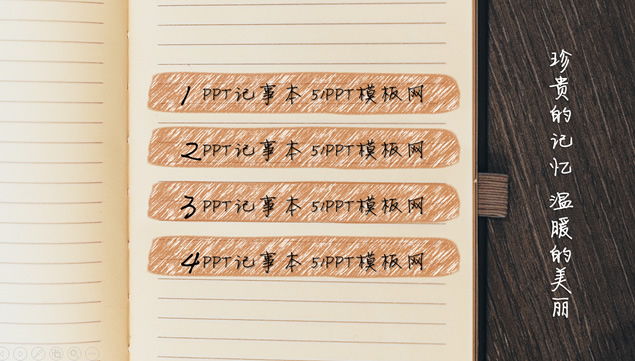 1 PPT记事本 51PPT模板网
2 PPT记事本 51PPT模板网
3 PPT记事本 51PPT模板网
4 PPT记事本 51PPT模板网
珍贵的记忆 温暖的美丽